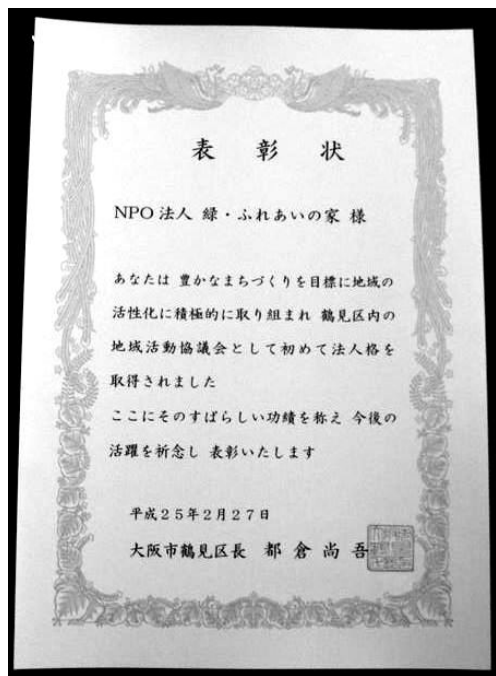 表彰状
NPO法人 緑・ふれあいの家 様
あなたは 豊かなまちづくりを目標に地域の
活性化に積極的に取り組まれ 鶴見区内の
地域活動協議会として初めて法人格を
取得されました
ここにそのすばらしい功績を称え 今後の
活躍を祈念し 表彰いたします
平成25年2月27日
大阪市鶴見区長 都倉尚吾